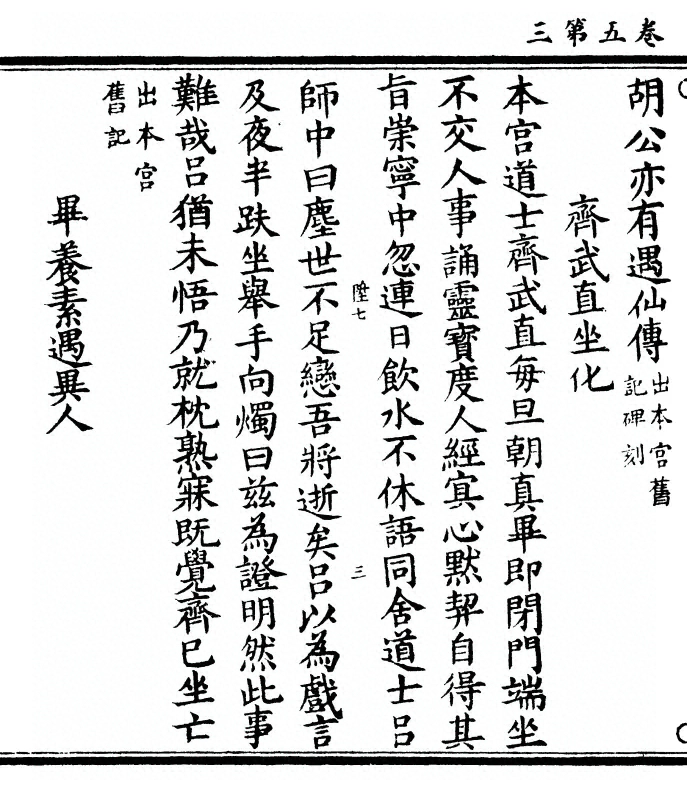 三第五卷
胡公亦有遇仙傳出本宮舊
記碑刻
齊武直坐化
本宮道士齊武直每旦朝真畢即閉門端坐
不交人事誦靈寶度人經寘心默契自得其
旨崇寧中忽連日飲水不休語同舍道士呂
陞七
三
師中曰塵世不足戀吾將逝矣呂以為戲言
及夜半趺坐舉手向燭曰茲為證明然此事
難哉呂猶未悟乃就枕熟寐既覺齊已坐亡
出本宮
舊記
畢養素遇異人